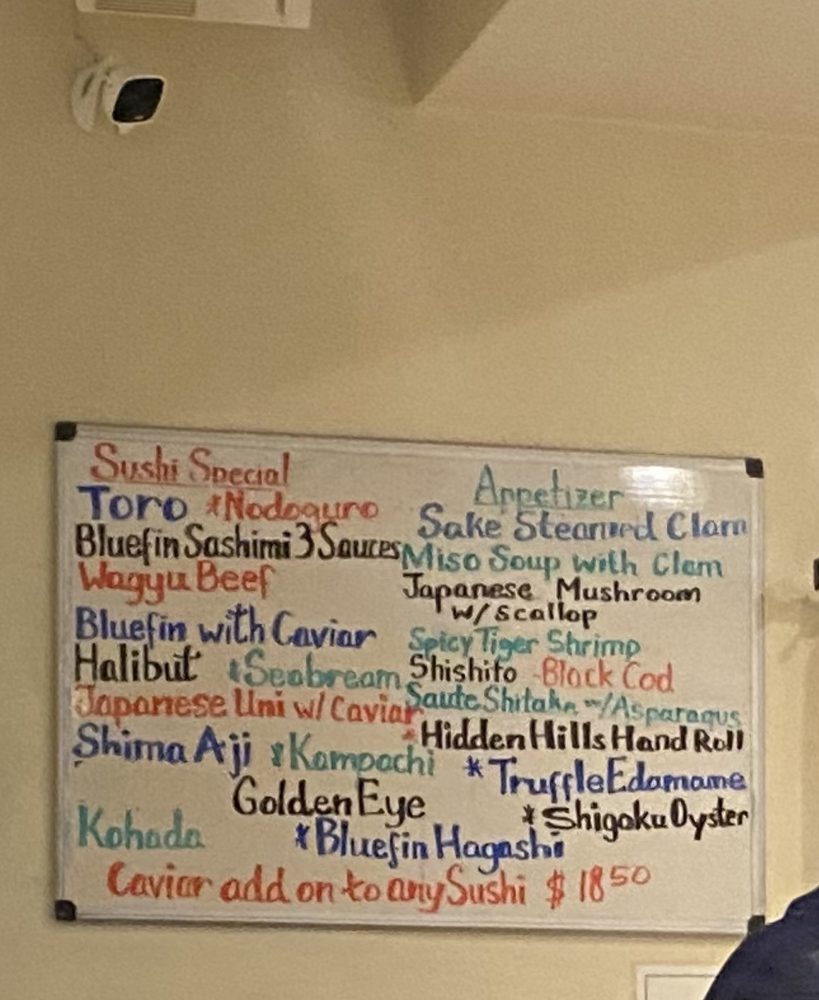 Sushi Special
Toro *Nodoguro
Bluefin Sashimi 3 Sauces
Wagyu Beef
Bluefin with Caviar
Halibut *Seabream
Japanese Uni w/ Caviar
Shima Aji *Kampachi
Golden Eye
Kohada *Bluefin Hagashi
Appetizer
Sake Steamed Clam
Miso Soup with Clam
Japanese Mushroom
w/ scallop
Spicy Tiger Shrimp
Shishito -Black Cod
Saute Shitake w/Asparagus
*Hidden Hills Hand Roll
*Truffle Edamame
*Shigoku Oyster
Caviar add on to any Sushi $ 18 50